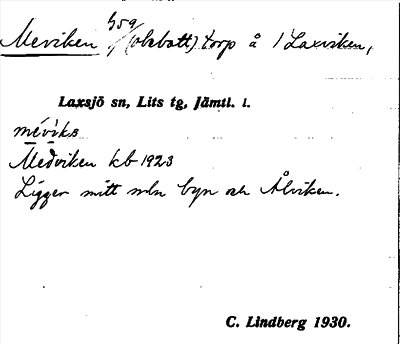 Meviken (obebott) torp å 1 Laxviken,
Laxsjö sn, Lits tg, Jämtl. l.
méviks
Medviken kb 1923
Ligger mitt mln byn och Ålviken.
C. Lindberg 1930.